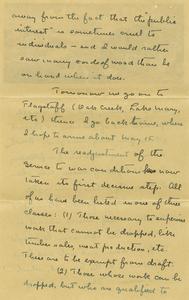 away from the fact that the "public
interest" is sometimes cruel to
individuals — and I would rather
saw many cords of wood than be
on hand when it does.
Tomorrow we go on to
Flagstaff (Oak Creek, Lake Mary,
etc) thence I go back to
I hope to arrive about May 15.
The readjustment of the
Service to war conditions has now
taken its first decisive step. All
of us have been listed in one of three
classes: (1) Those necessary to supervise
work that cannot be dropped, like
timber sales, meat production, etc.
These are to be exempt from draft.
(2) Those whose work can be
dropped, but who are qualified to